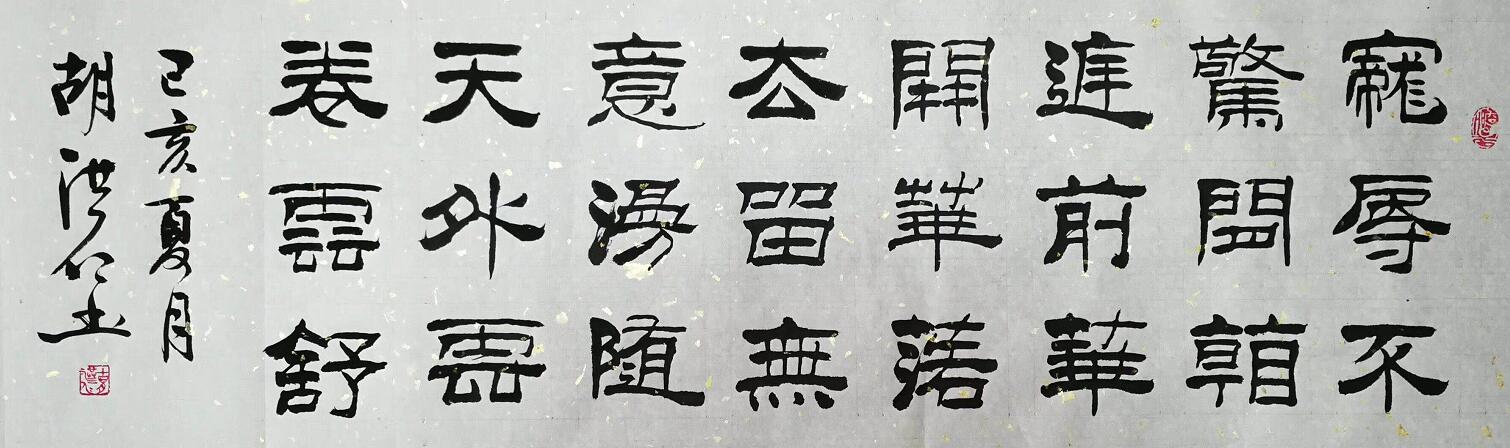 寵辱不
驚閒看
廷前華
開華落
去留無
意漫随
天外雲
卷雲舒
己亥夏月
胡洪仁书